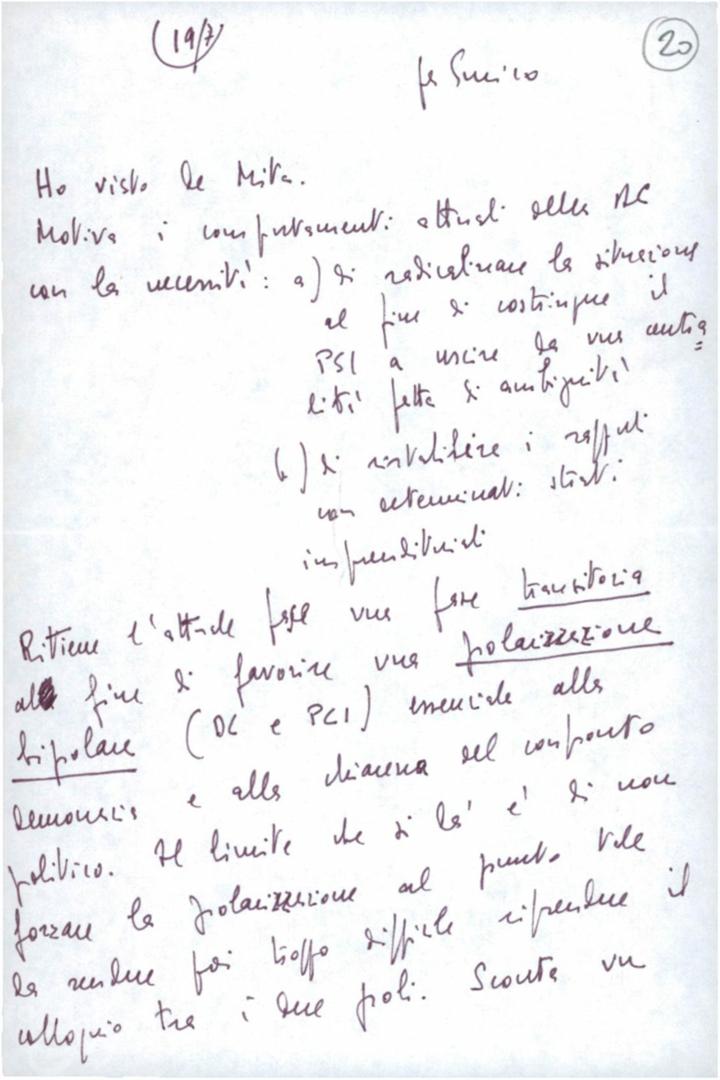 (19/7)
20
per Enrico
Ho visto De Mita.
Motiva i comportamenti attuali della DC
con la necessità: a) di radicalizzare la situazione
al fine di costringere il
PSI a uscire da una centra=
lità fatta di ambiguità
b) di ristabilire i rapporti
con determinati strati
imprenditoriali
Ritiene l'attuale fase una fase transitoria
al fine di favorire una polarizzazione
bipolare (DC e PCI) essenziale alla
democrazia e alla chiarezza del confronto
politico. Il limite che si dà è di non
forzare la polarizzazione al punto tale
da rendere poi troppo difficile riprendere il
colloquio tra i due poli. Sconta un